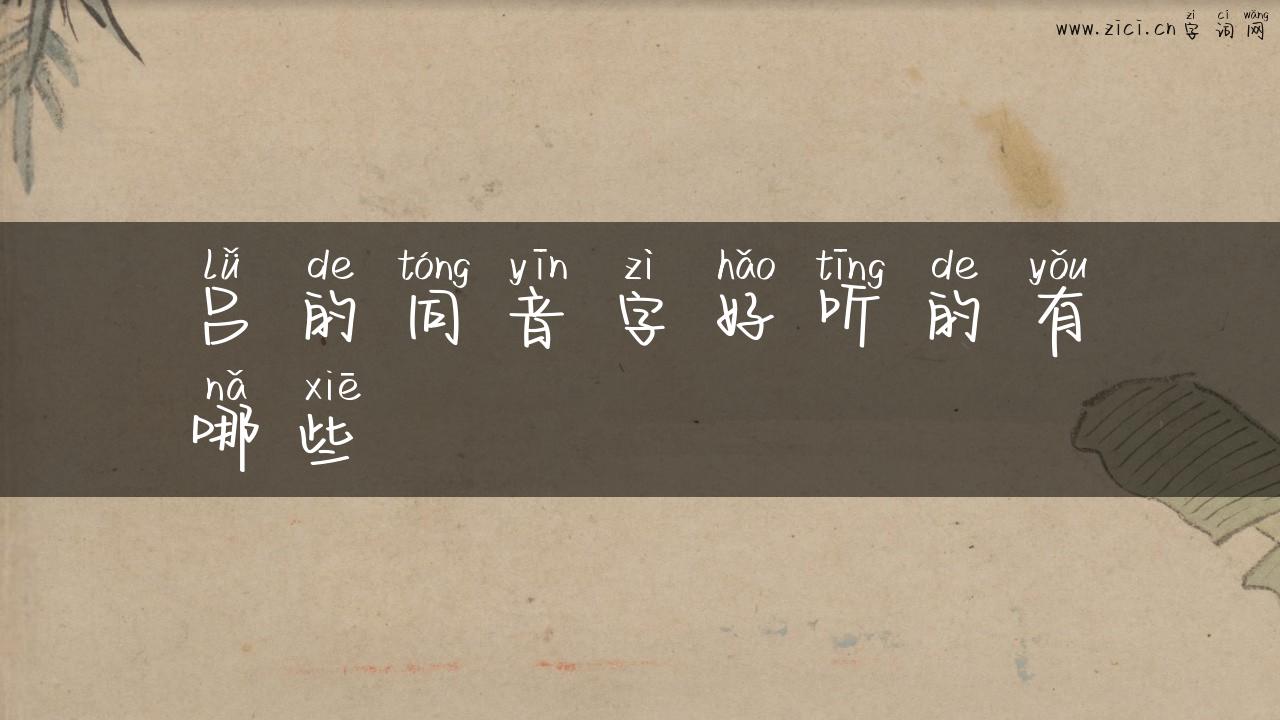 zì cí wǎng
www.zici.cn 字词网
lǚ de tóng yīn zì hǎo tīng de yǒu
吕的同音字好听的有
nǎ xiē
哪些